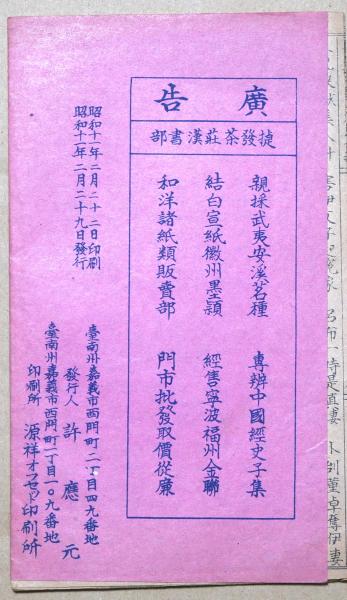 廣告
捷發茶莊漢書部
親採武夷安溪茗種　專辦中國經史子集
結白宣紙徽州墨穎　經售寧波福州金聯
和洋諸紙類販賣部　門市批發取價從廉
昭和十一年二月二十二日印刷
昭和十一年二月二十九日發行
臺南州嘉義市西門町二丁目四九番地
發行人　許應元
臺南州嘉義市西門町一丁目一〇九番地
印刷所　源祥オフセット印刷所